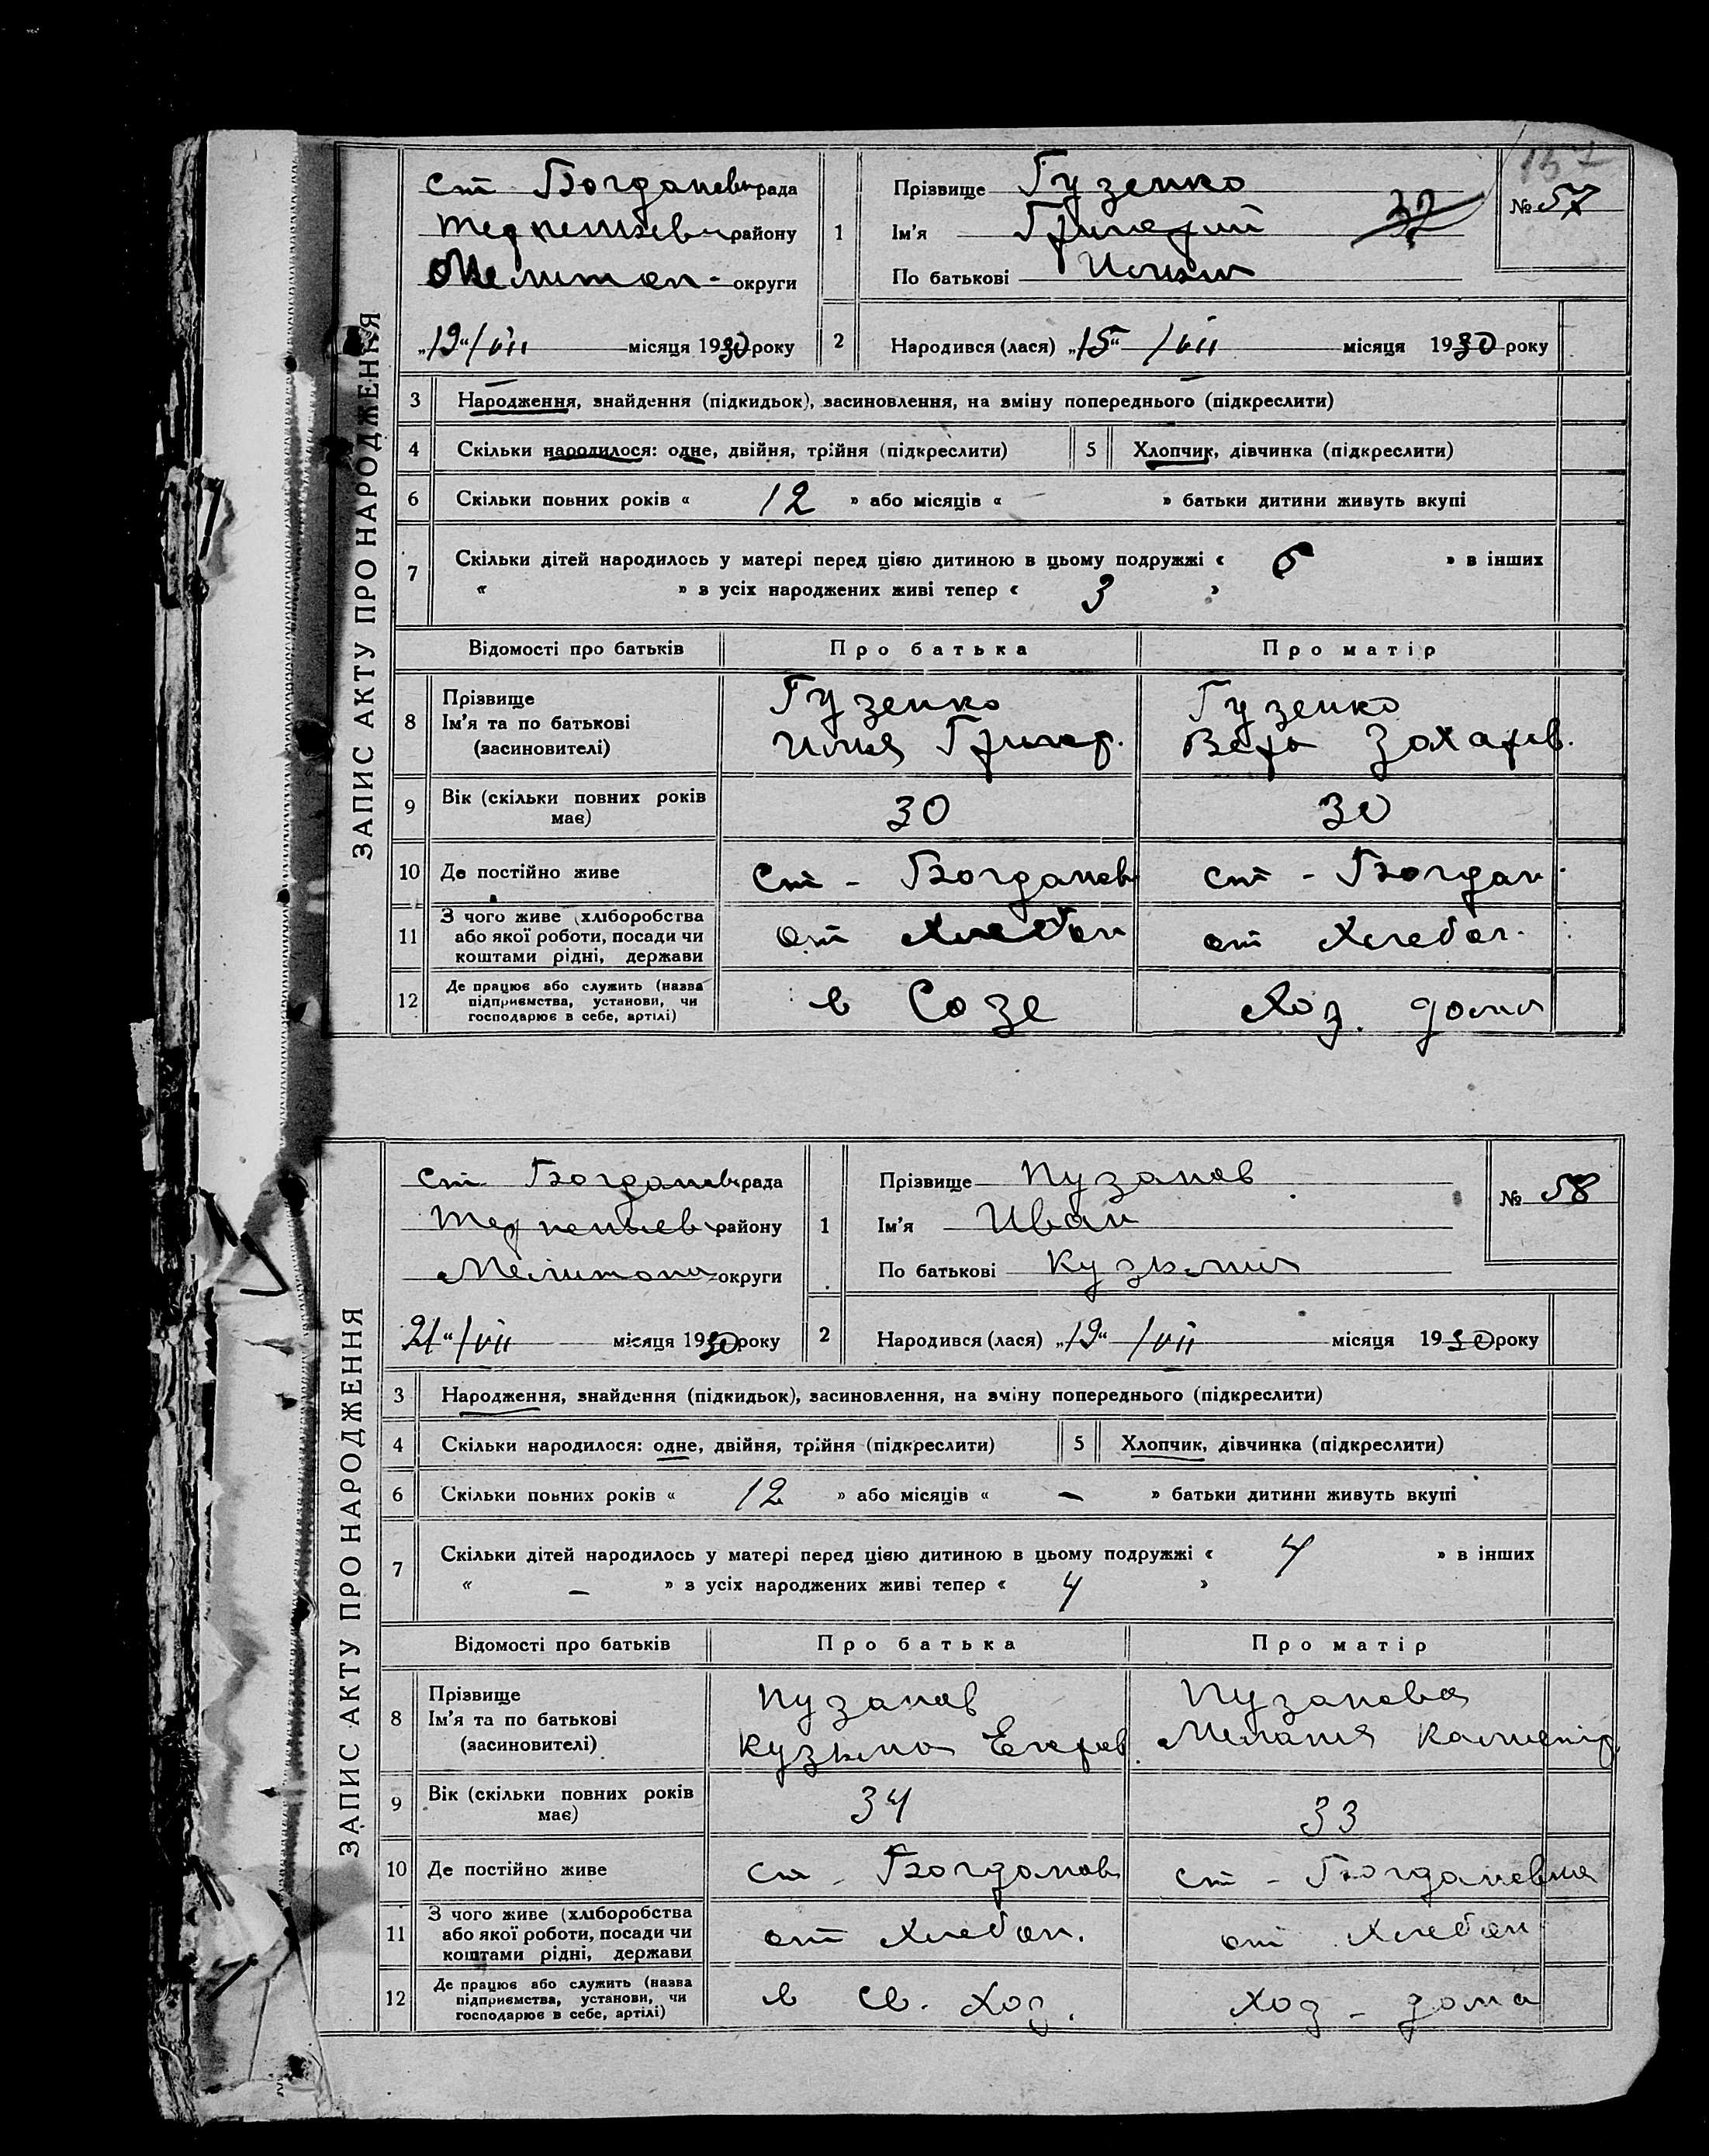 ЗАПИС АКТУ ПРО НАРОДЖЕННЯ
137
ст Богданевн рада
району
Мелитоп- округи
„19“/VII місяця 1930 року
1
Прізвище Гузенко
Ім'я Григорий
По батькові Ильич
32
№ 57
2
Народився (лася) „15“ /VII місяця 1930 року
3 Народження, знайдення (підкидьок), засиновлення, на зміну попереднього (підкреслити)
4 Скільки народилося: одне, двійня, трійня (підкреслити) 5 Хлопчик, дівчинка (підкреслити)
6 Скільки повних років « 12 » або місяців « – » батьки дитини живуть вкупі
7 Скільки дітей народилось у матері перед цією дитиною в цьому подружжі « » в інших
« » з усіх народжених живі тепер « 3 »
Відомості про батьків Про батька Про матір
8 Прізвище Гузенко Гузенко
Ім'я та по батькові Илья Григор. Вера Захаров.
(засиновителі)
9 Вік (скільки повних років має) 30 30
10 Де постійно живе Ст - Богданов ст - Богдан.
11 З чого живе (хліборобства
або якої роботи, посади чи от хлебоп от хлебоп.
коштами рідні, держави
12 Де працює або служить (назва
підприємства, установи, чи в Созе хоз. дома
господарює в себе, артілі)
ЗАПИС АКТУ ПРО НАРОДЖЕННЯ
ст Богданевн рада
району
Мелитопол округи
21“/VII місяця 1930 року
1
Прізвище Пузанов
Ім'я Иван
По батькові Кузьмич
№ 58
2
Народився (лася) „19“ /VII місяця 1930 року
3 Народження, знайдення (підкидьок), засиновлення, на зміну попереднього (підкреслити)
4 Скільки народилося: одне, двійня, трійня (підкреслити) 5 Хлопчик, дівчинка (підкреслити)
6 Скільки повних років « 12 » або місяців « – » батьки дитини живуть вкупі
7 Скільки дітей народилось у матері перед цією дитиною в цьому подружжі « 4 » в інших
« – » з усіх народжених живі тепер « 4 »
Відомості про батьків Про батька Про матір
8 Прізвище Пузанов Пузанова
Ім'я та по батькові Кузьма Егоров. Мелания
(засиновителі)
9 Вік (скільки повних років має) 34 33
10 Де постійно живе ст - Богданов ст - Богдановка
11 З чого живе (хліборобства
або якої роботи, посади чи от хлебоп. от хлебоп
коштами рідні, держави
12 Де працює або служить (назва
підприємства, установи, чи в св. хоз. хоз - дома
господарює в себе, артілі)